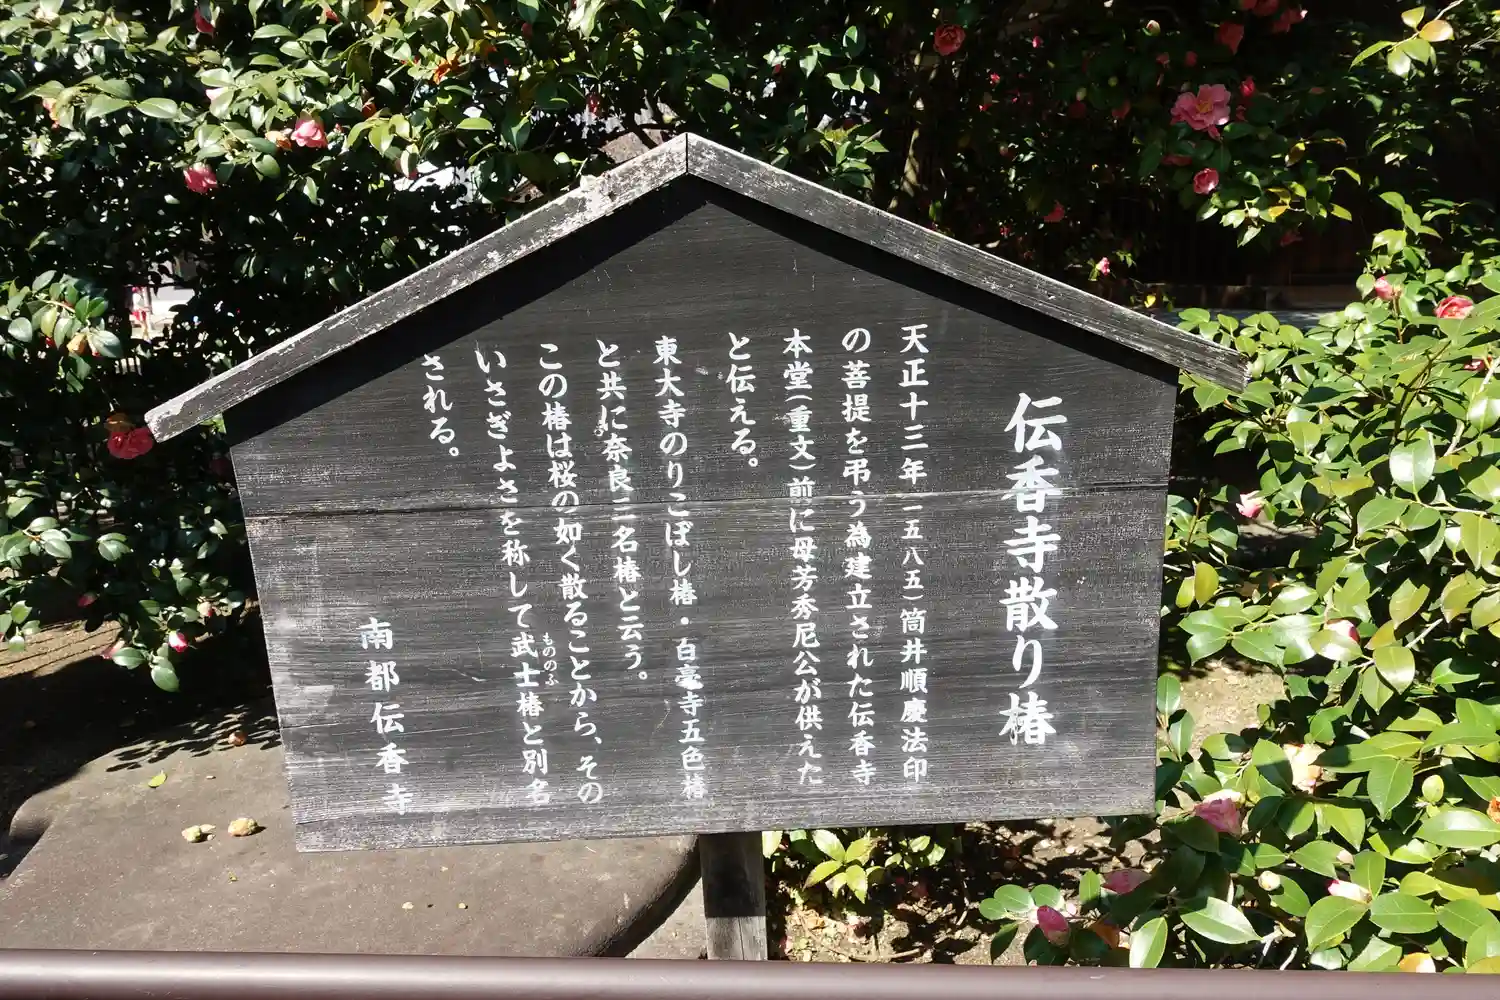 伝香寺散り椿
天正十三年(一五八五)筒井順慶法印
の菩提を弔う為建立された伝香寺
本堂(重文)前に母芳秀尼公が供えた
と伝える。
東大寺のりこぼし椿・白毫寺五色椿
と共に奈良三名椿と云う。
この椿は桜の如く散ることから、その
いさぎよさを称して武士椿と別名
もののふ
される。
南都伝香寺